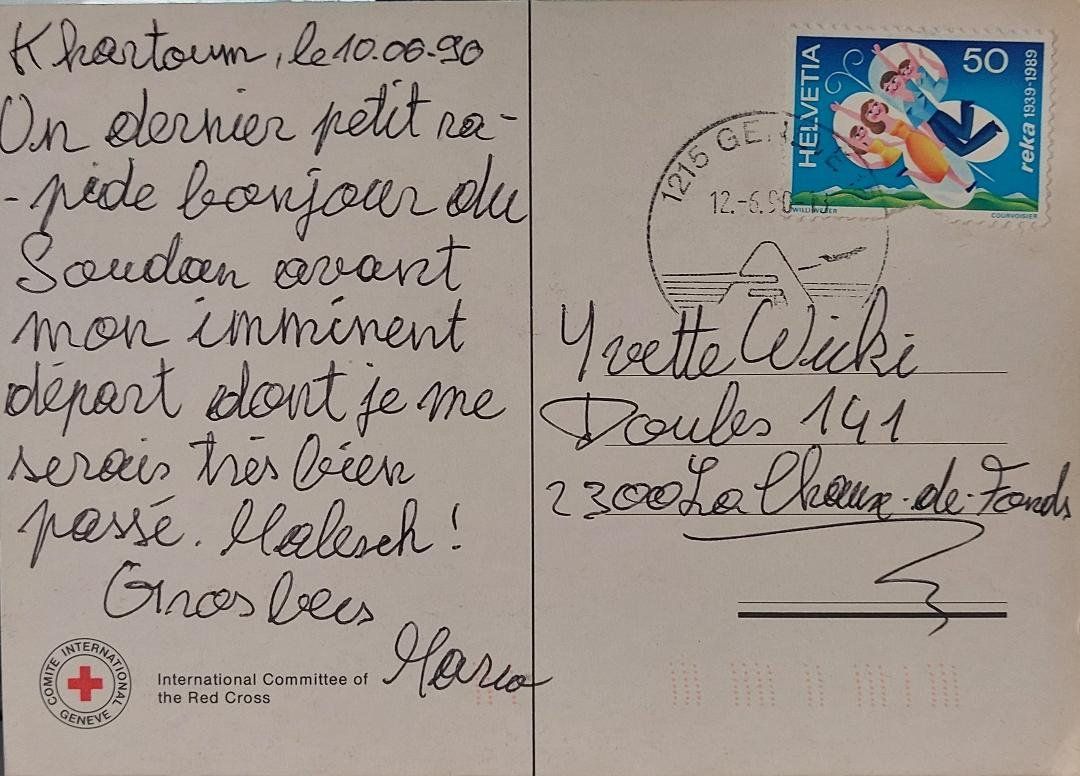 Khartoum, le 10.06.90
Un dernier petit ra-
-pide bonjour du
Soudan avant
mon imminent
départ dont je me
serais très bien
passé. Malesch !
Gros becs
Marco
COMITE INTERNATIONAL
GENEVE
International Committee of
the Red Cross
HELVETIA
50
reka 1939-1989
COURVOISIER
1215 GENÈVE
12.-6.90
Yvette Wicki
Doubs 141
2300 La Chaux-de-Fonds